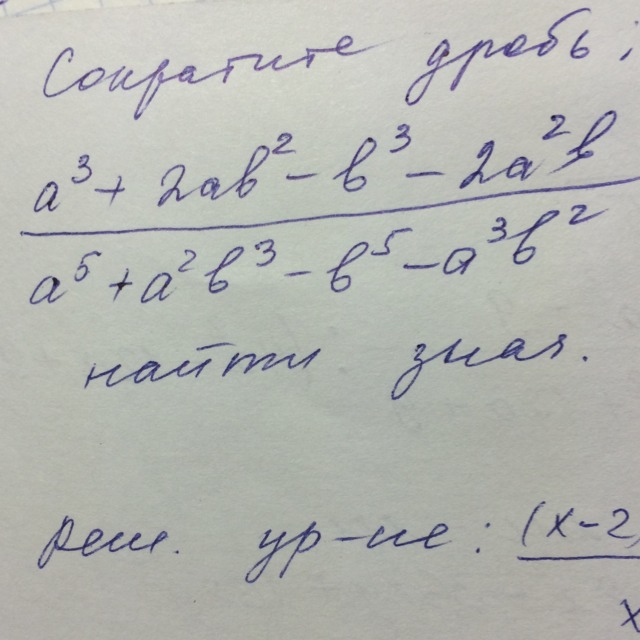 Сократите дробь;
a³ + 2ab² - b³ - 2a²b
a⁵ + a²b³ - b⁵ - a³b²
найти знач.
реш. ур-ие: (x-2)
x